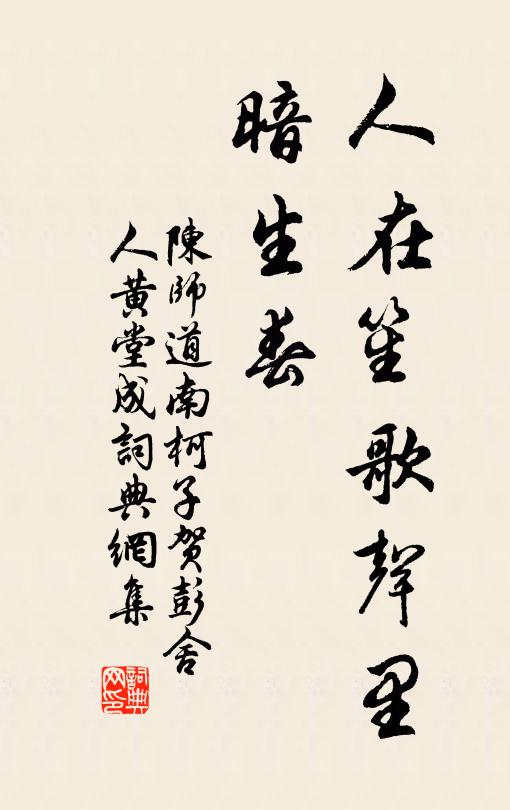 人在笙歌聲里
暗生春
陳師道南柯子賀彭舍
人黄堂成詞典網集
詞典网印